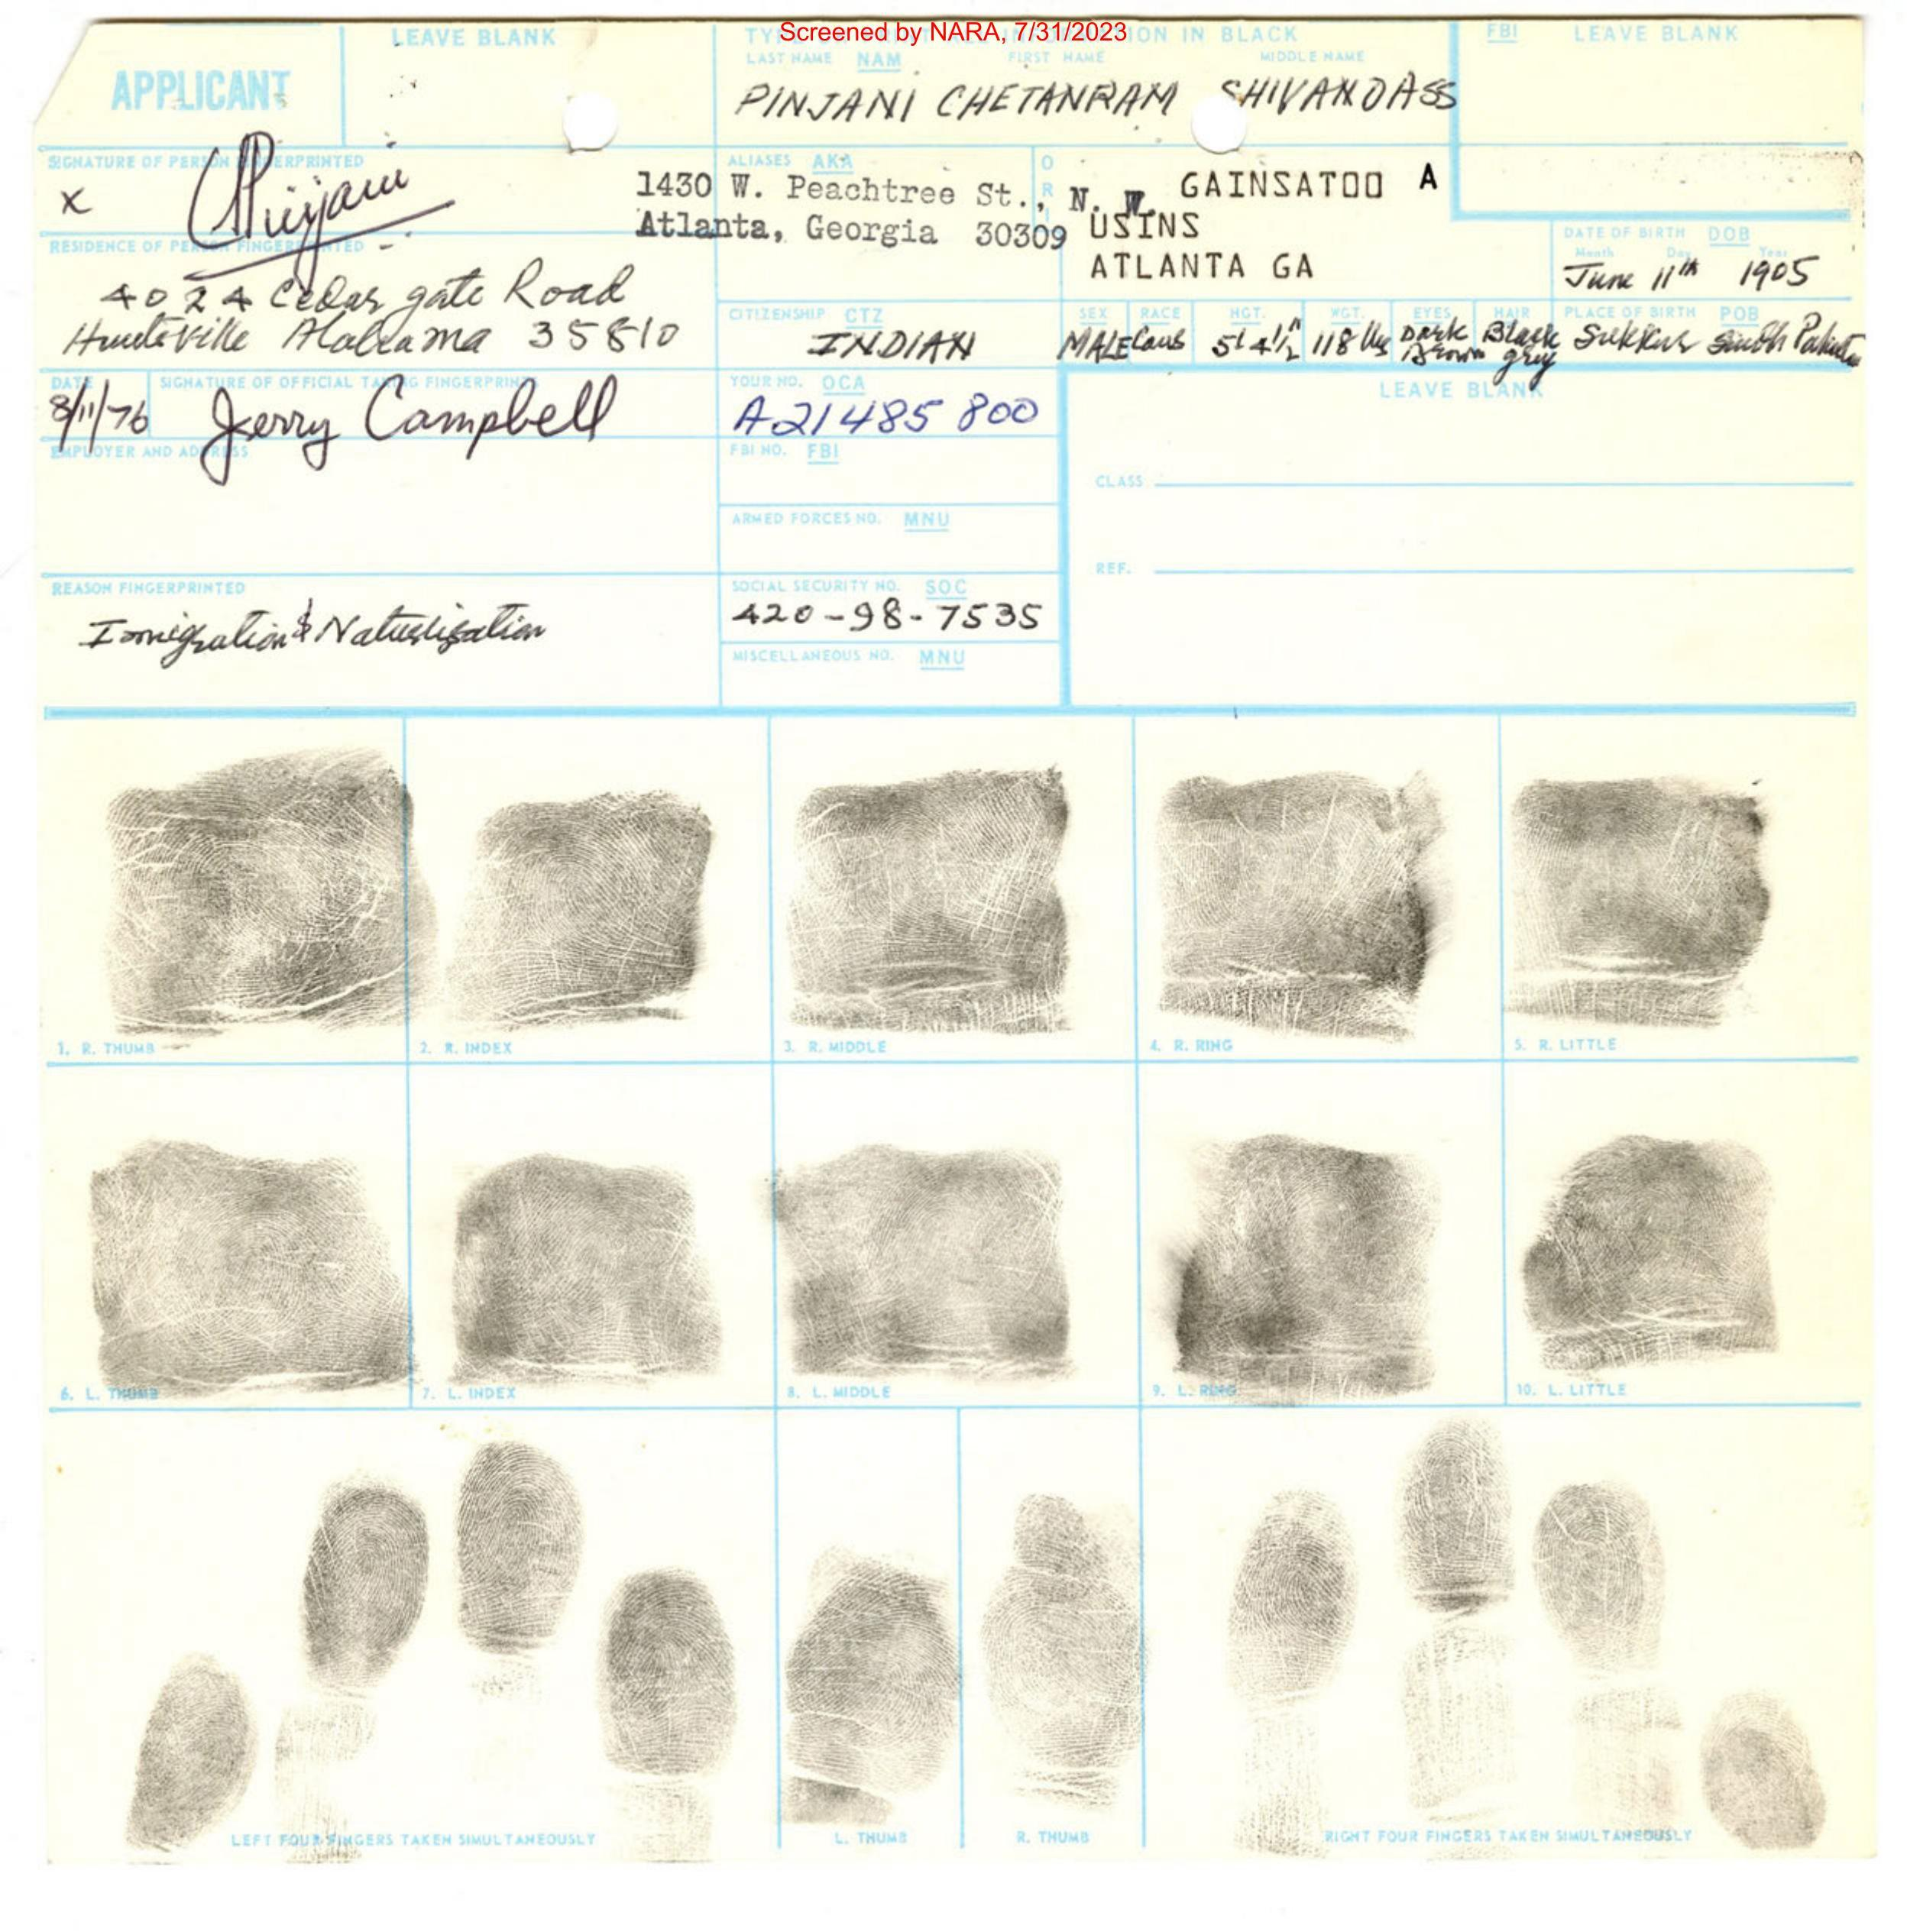 Screened by NARA, 7/31/2023
APPLICANT
LEAVE BLANK
LAST NAME NAM FIRST NAME MIDDLE NAME
PINJANI CHETANRAM SHIVANDASS
FBI LEAVE BLANK
SIGNATURE OF PERSON FINGERPRINTED
x CPinjani
ALIASES AKA
ORI
1430 W. Peachtree St., N. W.
Atlanta, Georgia 30309
GAINSATOO A
USINS
ATLANTA GA
DATE OF BIRTH DOB
Month Day Year
June 11th 1905
RESIDENCE OF PERSON FINGERPRINTED
4024 Cedar gate Road
Huntsville Alabama 35810
CITIZENSHIP CTZ
INDIAN
SEX RACE HGT. WGT. EYES HAIR PLACE OF BIRTH POB
MALE Caus 5' 4½" 118 lbs Dark Brown Black grey Sukkur Sindh Pakistan
DATE
8/11/76
SIGNATURE OF OFFICIAL TAKING FINGERPRINTS
Jerry Campbell
YOUR NO. OCA
A21485 800
LEAVE BLANK
EMPLOYER AND ADDRESS
FBI NO. FBI
CLASS
ARMED FORCES NO. MNU
REF.
REASON FINGERPRINTED
Immigration & Naturlisation
SOCIAL SECURITY NO. SOC
420-98-7535
MISCELLANEOUS NO. MNU
1. R. THUMB
2. R. INDEX
3. R. MIDDLE
4. R. RING
5. R. LITTLE
6. L. THUMB
7. L. INDEX
8. L. MIDDLE
9. L. RING
10. L. LITTLE
LEFT FOUR FINGERS TAKEN SIMULTANEOUSLY
L. THUMB
R. THUMB
RIGHT FOUR FINGERS TAKEN SIMULTANEOUSLY